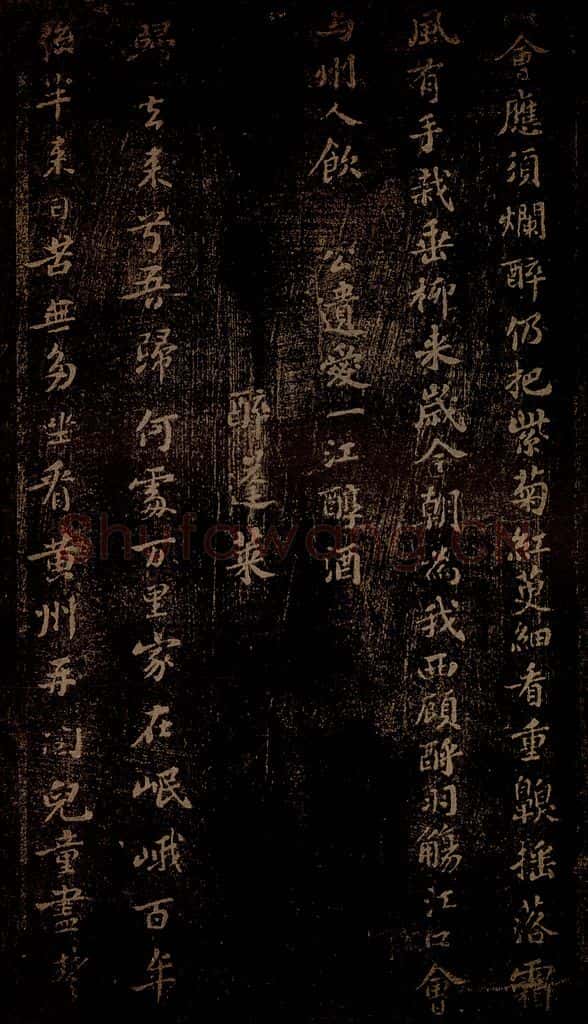 會應須爛醉仍把紫菊紅萸細看重齅搖落霜
風有手栽垂柳来歲今朝為我西顧酹羽觴江口會
与州人飲 公遺愛一江醇酒
醉蓬萊
歸去来兮吾歸何處万里家在岷峨百年
強半来日苦無多坐看黄州再閏兒童盡楚
Shufawang.CN